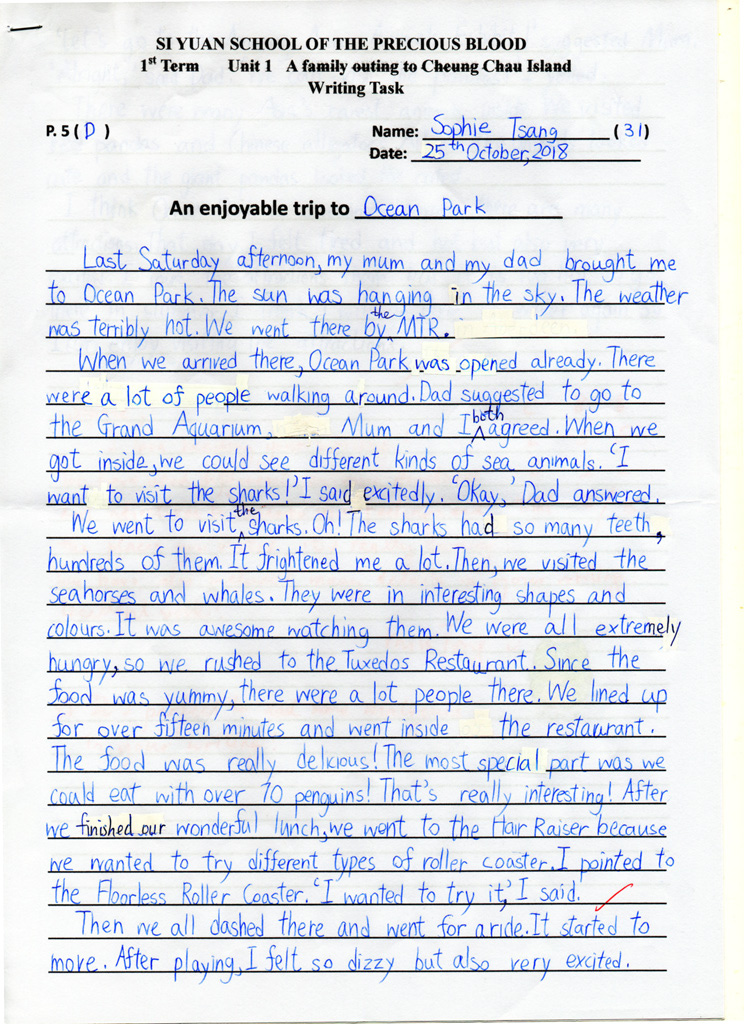 SI YUAN SCHOOL OF THE PRECIOUS BLOOD
1st Term Unit 1 A family outing to Cheung Chau Island
Writing Task
P. 5 ( D ) Name: Sophie Tsang ( 31 )
Date: 25th October, 2018
An enjoyable trip to Ocean Park
Last Saturday afternoon, my mum and my dad brought me
to Ocean Park. The sun was hanging in the sky. The weather
was terribly hot. We went there by the MTR.
When we arrived there, Ocean Park was opened already. There
were a lot of people walking around. Dad suggested to go to
the Grand Aquarium, Mum and I both agreed. When we
got inside, we could see different kinds of sea animals. 'I
want to visit the sharks!' I said excitedly. 'Okay,' Dad answered.
We went to visit the sharks. Oh! The sharks had so many teeth,
hundreds of them. It frightened me a lot. Then, we visited the
seahorses and whales. They were in interesting shapes and
colours. It was awesome watching them. We were all extremely
hungry, so we rushed to the Tuxedos Restaurant. Since the
food was yummy, there were a lot people there. We lined up
for over fifteen minutes and went inside the restaurant.
The food was really delicious! The most special part was we
could eat with over 70 penguins! That's really interesting! After
we finished our wonderful lunch, we went to the Hair Raiser because
we wanted to try different types of roller coaster. I pointed to
the Floorless Roller Coaster. 'I wanted to try it,' I said.
Then we all dashed there and went for a ride. It started to
move. After playing, I felt so dizzy but also very excited.